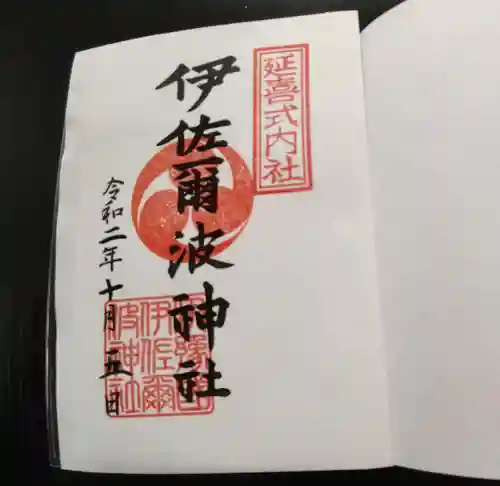 延喜式内社
伊佐爾波神社
令和二年十月二五日
伊豫國
伊佐爾
波神社